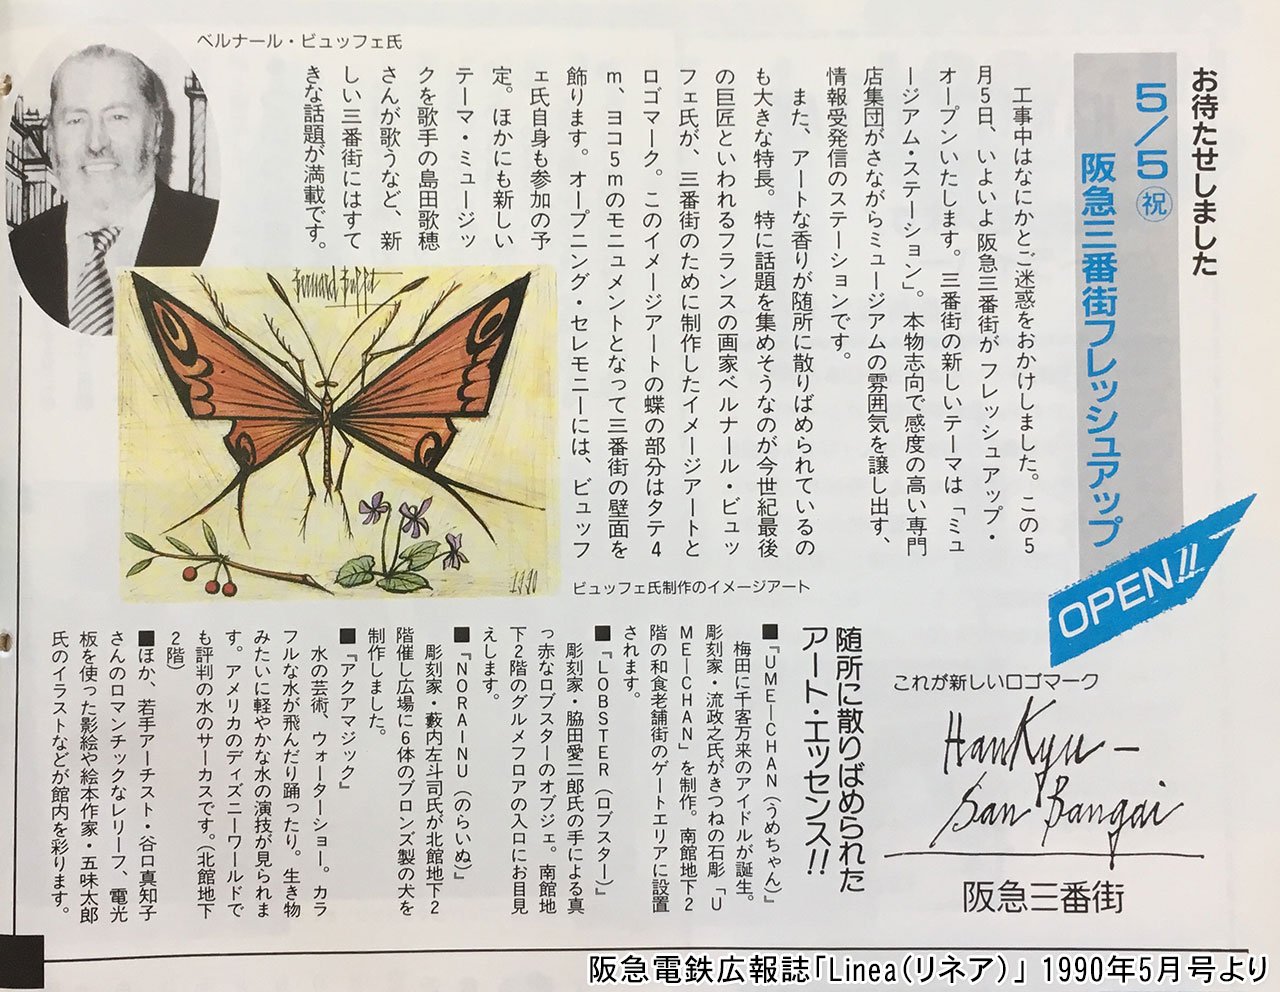 お待たせしました
5/5㊗
阪急三番街フレッシュアップ
OPEN!!
工事中はなにかとご迷惑をおかけしました。この5
月5日、いよいよ阪急三番街がフレッシュアップ・
オープンいたします。三番街の新しいテーマは「ミュ
ージアム・ステーション」。本物志向で感度の高い専門
店集団がさながらミュージアムの雰囲気を譲し出す、
情報受発信のステーションです。
また、アートな香りが随所に散りばめられているの
も大きな特長。特に話題を集めそうなのが今世紀最後
の巨匠といわれるフランスの画家ベルナール・ビュッ
フェ氏が、三番街のために制作したイメージアートと
ロゴマーク。このイメージアートの蝶の部分はタテ4
m、ヨコ5mのモニュメントとなって三番街の壁面を
飾ります。オープニング・セレモニーには、ビュッフ
ェ氏自身も参加の予
定。ほかにも新しい
テーマ・ミュージッ
クを歌手の島田歌穂
さんが歌うなど、新
しい三番街にはすて
きな話題が満載です。
ベルナール・ビュッフェ氏
Bernard Buffet
1990
ビュッフェ氏制作のイメージアート
これが新しいロゴマーク
HanKyu-
San Bangai
阪急三番街
随所に散りばめられた
アート・エッセンス!!
■『UME-CHAN(うめちゃん)』
梅田に千客万来のアイドルが誕生。
彫刻家・流政之氏がきつねの石彫「U
ME-CHAN」を制作。南館地下2
階の和食老舗街のゲートエリアに設置
されます。
■『LOBSTER(ロブスター)』
彫刻家・脇田愛二郎氏の手による真
っ赤なロブスターのオブジェ。南館地
下2階のグルメフロアの入口にお目見
えします。
■『NORAINU(のらいぬ)』
彫刻家・藪内左斗司氏が北館地下2
階催し広場に6体のブロンズ製の犬を
制作しました。
■『アクアマジック』
水の芸術、ウォーターショー。カラ
フルな水が飛んだり踊ったり。生き物
みたいに軽やかな水の演技が見られま
す。アメリカのディズニーワールドで
も評判の水のサーカスです。(北館地下
2階)
■ほか、若手アーチスト・谷口真知子
さんのロマンチックなレリーフ、電光
板を使った影絵や絵本作家・五味太郎
氏のイラストなどが館内を彩ります。
阪急電鉄広報誌「Linea(リネア)」1990年5月号より